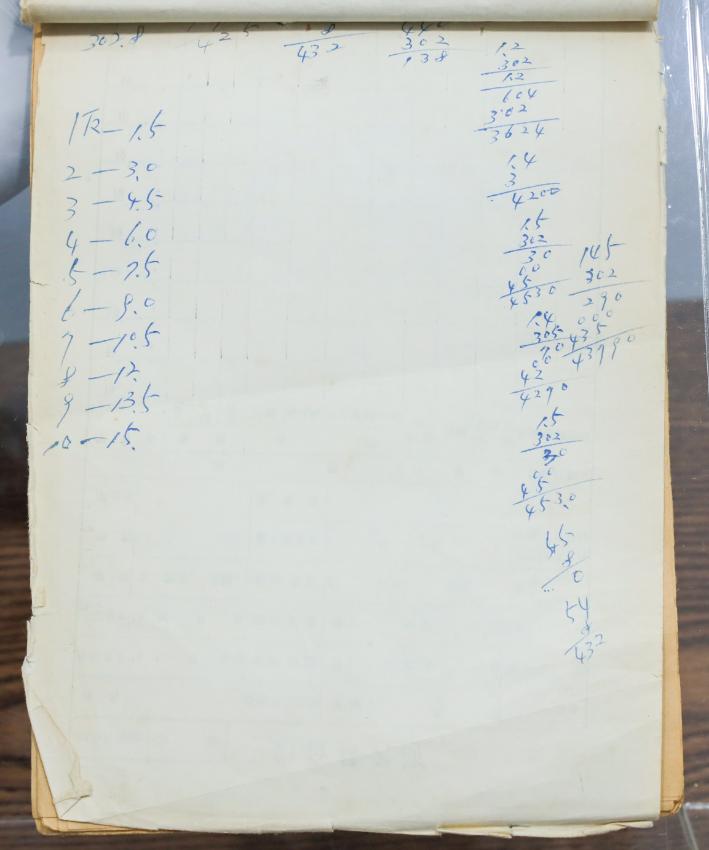 302.8
425
8
432
302
138
1.5
2 — 3.0
3 — 4.5
4 — 6.0
5 — 7.5
6 — 9.0
7 — 10.5
8 — 12.
9 — 13.5
10 — 15.
1.2
302
1.2
604
302
3624
1.4
3
4200
1.5
302
30
00
45
4530
145
302
290
000
435
43790
1.4
305
70
00
42
4290
1.5
302
30
00
45
453.0
45
8
0
54
8
432